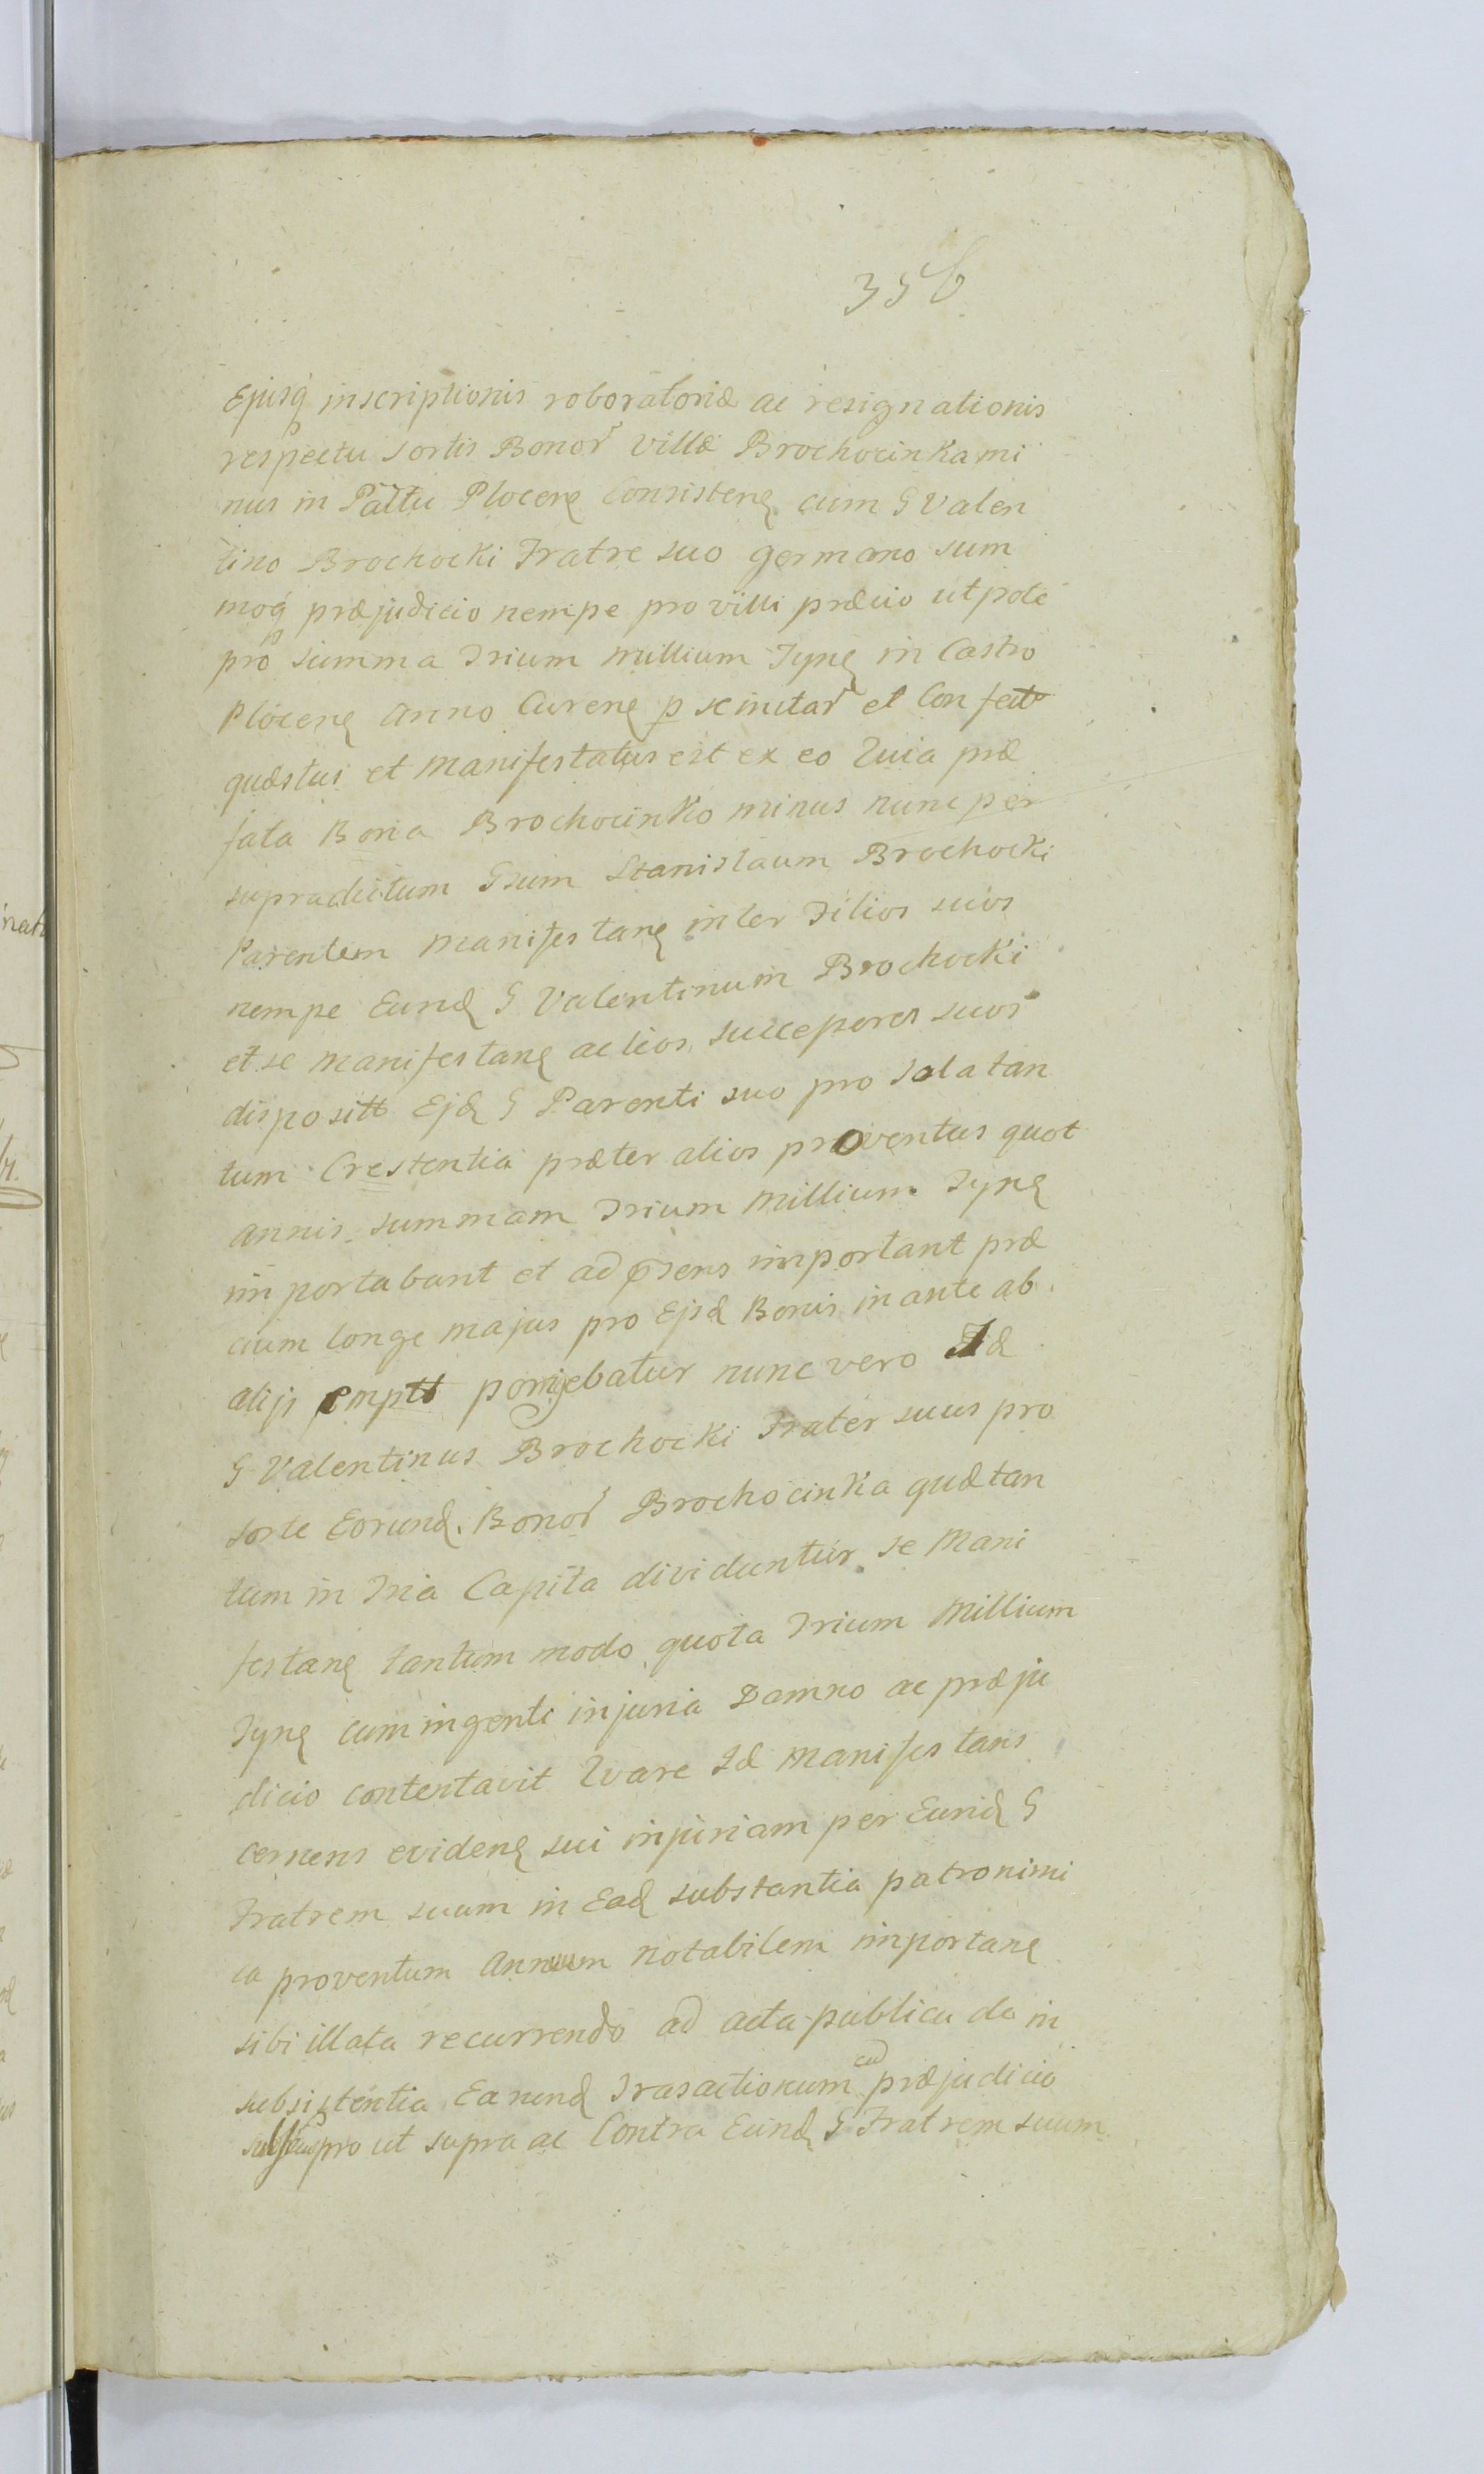 356
Ejusq inscriptionis roboratoriæ ac resignationis
respectu sortis Bonor Villæ Brochocinka mi
nus in Pāltu Plocenę Consistenę cum G Valen
tino Brochocki Fratre suo germano sum
moq præjudicio nempe pro villi præcio utpote
pro summa Trium Millium Tynę in Castro
Plocenę Anno Curenę p et Confect
quæstus et Manifestatus est ex eo Quia præ
fata Bona Brochocinko minus nunc per
supradictum Gsum Stanislaum Brochocki
Parentem Manifestanę inter Filios suos
nempe Eund G Valentinum Brochocki
et se Manifestanę ac successores suos
dispositt Ejd G Parenti suo pro sola tan
tum Crestentia præter alios proventus quot
annis summam Trium Millium Tynę
importabant et ad pñsens important præ
cium longe majus pro Ejsd Bonis in ante ab
alijs emptt porrigebatur nunc vero Id
G Valentinus Brochocki Frater suus pro
sorte Eorund Bonor Brochocinka quæ tan
tum in Tria Capita dividuntur se Mani
festanę tantum modo quota Trium Millium
Tynę cum ingenti injuria Damno ac præju
dicio contentavit Quare Id Manifestans
cernens evidenę sui injuriam per Eund G
Fratrem suum in Ead substantia patronimi
ca proventum Annuum notabilem importanę
sibi illata recurrendo ad acta publica de in
subsistentia Earund Trasactionum cū præjudicio
pro ut supra ac Contra Eund G Fratrem suum